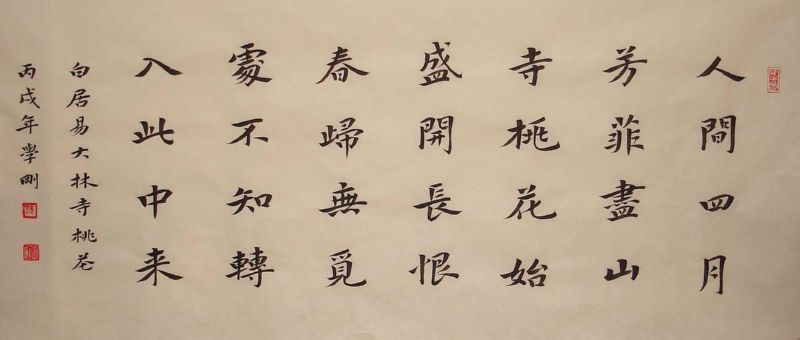 人間四月
芳菲盡山
寺桃花始
盛開長恨
春歸無覓
處不知轉
入此中来
白居易大林寺桃花
丙戌年學剛